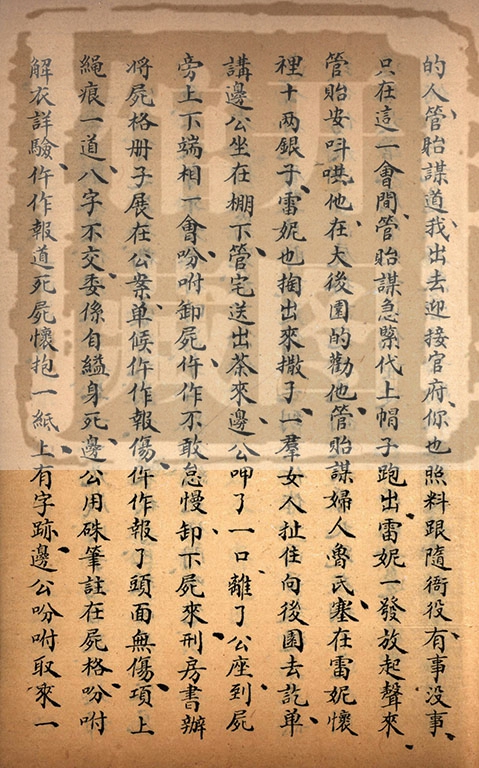 的人管貽謀道我出去迎接官府你也照料跟隨衙役有事没事
只在這一會間管貽謀急緊代上帽子跑出雷妮一發放起聲來
管貽安呌哄他在大後園的勸他管貽謀婦人魯氏塞在雷妮懷
裡十两銀子雷妮也掏出來撒了一羣女人扯住向後園去訖单
講邊公坐在棚下管宅送出茶來邊公呷了一口離了公座到屍
旁上下端相一會吩咐卸屍仵作不敢怠慢卸下屍來刑房書辦
将屍格册子展在公案单候仵作報傷仵作報了頭面無傷項上
繩痕一道八字不交委係自縊身死邊公用硃筆註在屍格吩咐
解衣詳驗仵作報道死屍懷抱一紙上有字跡邊公吩咐取來一